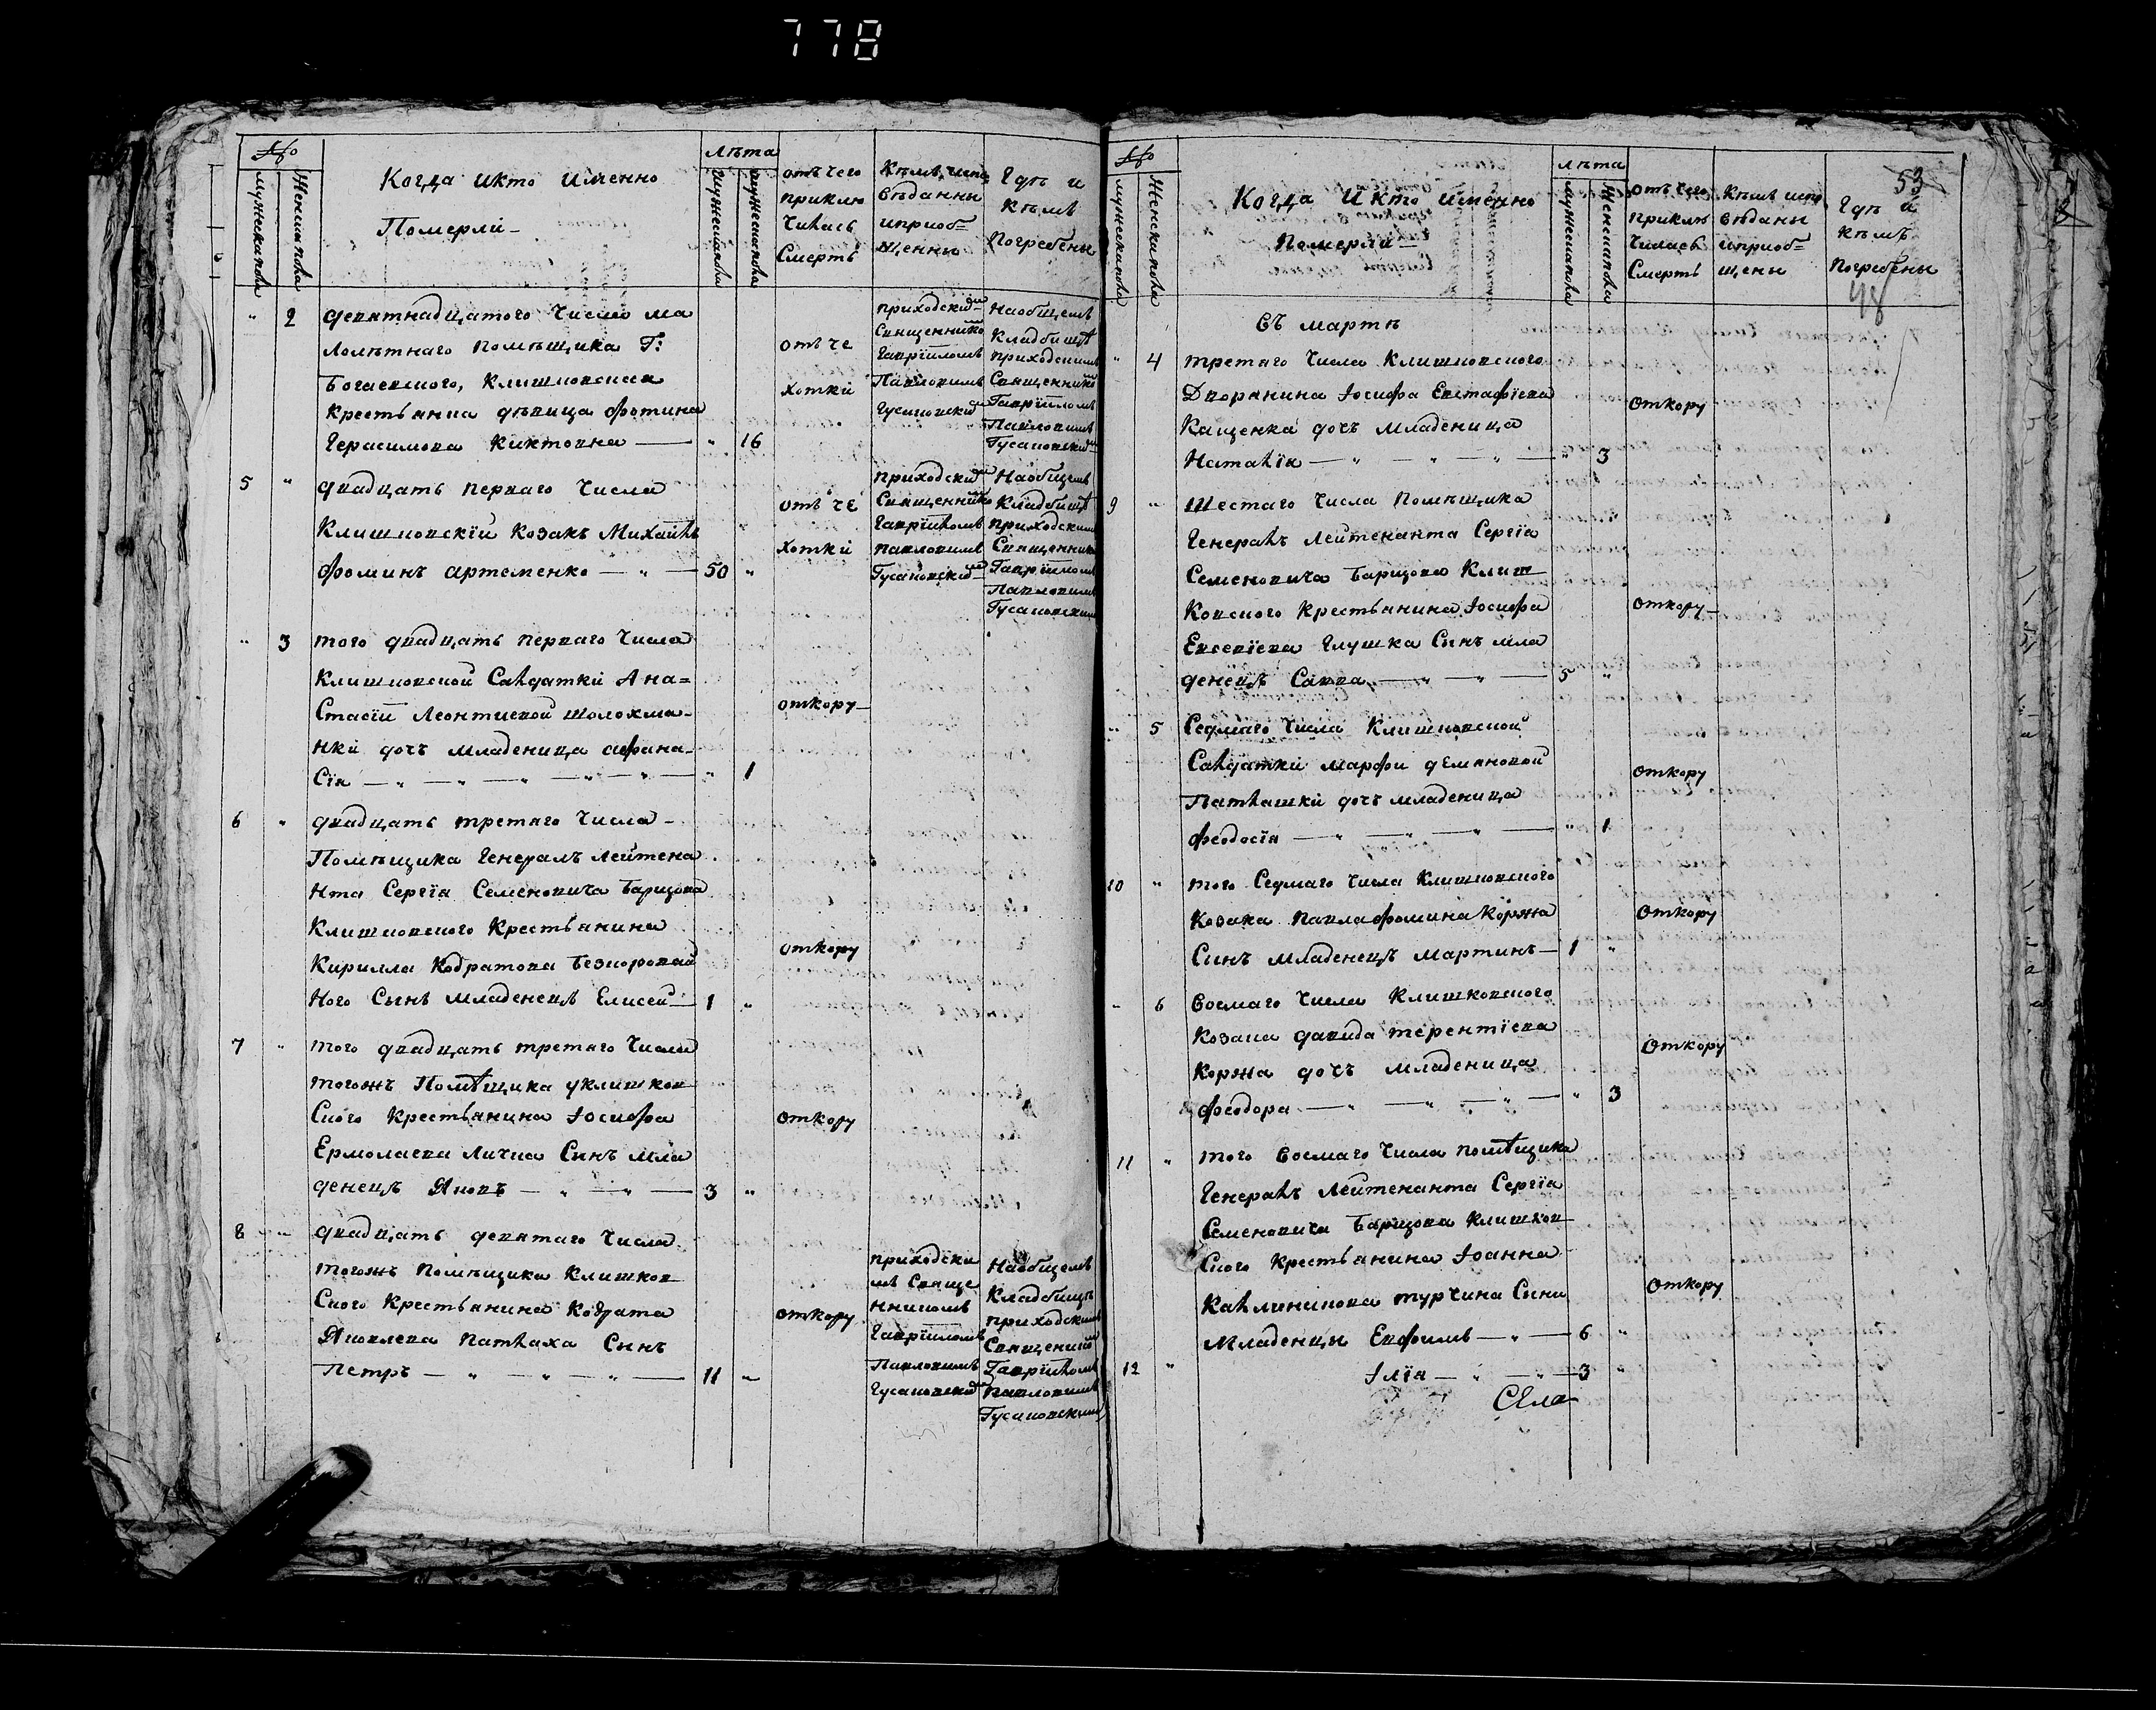 778
№
Мужеска пола
Женска пола
Когда и кто именно
Померли
лѣта
мужеска пола
отъ чего
приклю
чилась
Смерть
Кѣмъ испо
вѣданны
и приоб=
щенны
Гдѣ и
кѣмъ
Погребены
" 2 девятнадцатого Числа ма
лолѣтнаго помѣщика Г:
Богаевского, Клишковская
крестьянка дѣвица Фотина
Герасимова Киктовна — " 16
отъ че
хотки
приходским
Священнико
Гаврииломъ
Павловимъ
Гусаковским
На общемъ
Кладбищѣ
приходскимъ
Священнико
Гаврииломъ
Павловимъ
Гусаковским
5 " двадцать перваго Числа
Клишковскій Козакъ Михаилъ
Фоминъ Артеменко — " — 50 "
отъ че
хотки
приходским
Священнико
Гаврииломъ
Павловимъ
Гусаковским
На общемъ
Кладбищѣ
приходским
Священнико
Гаврииломъ
Павловимъ
Гусаковским
" 3 того двадцать перваго Числа
Клишковской Салдатки Ана=
Стасіи Леонтиевой Шолохма-
нки дочъ младеница Афана-
Сія — " — " — " — " — " — " 1
от кору
6 " двадцать третяго Числа
Помѣщика Генералъ Лейтена
нта Сергія Семеновича Барщова
Клишковского Крестьянина
Кирилла Кодратова
ного Сынъ младенецъ Елисей — 1 "
от кору
7 " того двадцать третяго Числа
тогожъ Помѣщика у Клишков
Ского Крестьянина Іосифа
Ермолаева Личка Сынъ мла
денецъ Яковъ — " — " — 3 "
от кору
8 " двадцать девятаго Числа
тогожъ помѣщика Клишков
Ского Крестьянина Кодрата
Яковлева Патлаха Сынъ
Петръ — " — " — " — 11 "
от кору
приходски
мъ Свяще
нникомъ
Гаврииломъ
Павловимъ
Гусаковским
На общемъ
Кладбищѣ
приходскимъ
Священнико
Гаврииломъ
Павловимъ
Гусаковскимъ
№
Мужеска пола
Женска пола
Когда и кто именно
Померли
лѣта
Мужеска пола
Женска пола
отъ чего
приклю
чилась
Смерть
Кѣмъ испо
вѣданы
и приоб=
щены
Гдѣ и
кѣмъ
погребены
53
48
Въ мартѣ
" 4 третяго Числа Клишковского
Дворянина Іосифа Евстафіева
Кащенка дочъ младеница
Наталія — " — " — " — " 3
от кору
9 " Шестаго Числа Помѣщика
Генералъ Лейтенанта Сергія
Семеновича Барщова Клиш
Ковского Крестьянина Іосифа
Евсевіева Глушка Сынъ мла
денецъ Савва — " — 5 "
от кору
" 5 Седмаго Числа Клишковской
Салдатки Марфи Демяновой
Патлашки дочъ младеница
Феодосія — " — " — " — " 1
от кору
10 " того Седмаго Числа Клишковского
Козака Павла Фомина Коржа
Сынъ младенецъ Мартинъ — 1 "
от кору
" 6 Восмаго Числа Клишковского
Козака Давида Терентіева
Коржа дочъ младеница
Феодора — " — " — " — " 3
от кору
11 " того Восмаго Числа помѣщика
Генералъ Лейтенанта Сергія
Семеновича Барщова Клишков
Ского Крестьянина Іоанна
Калминикова Турчина Сыни
Младенцы Евфимъ — " — 6 "
от кору
12 " Ілія — " — " — 3 "
Села